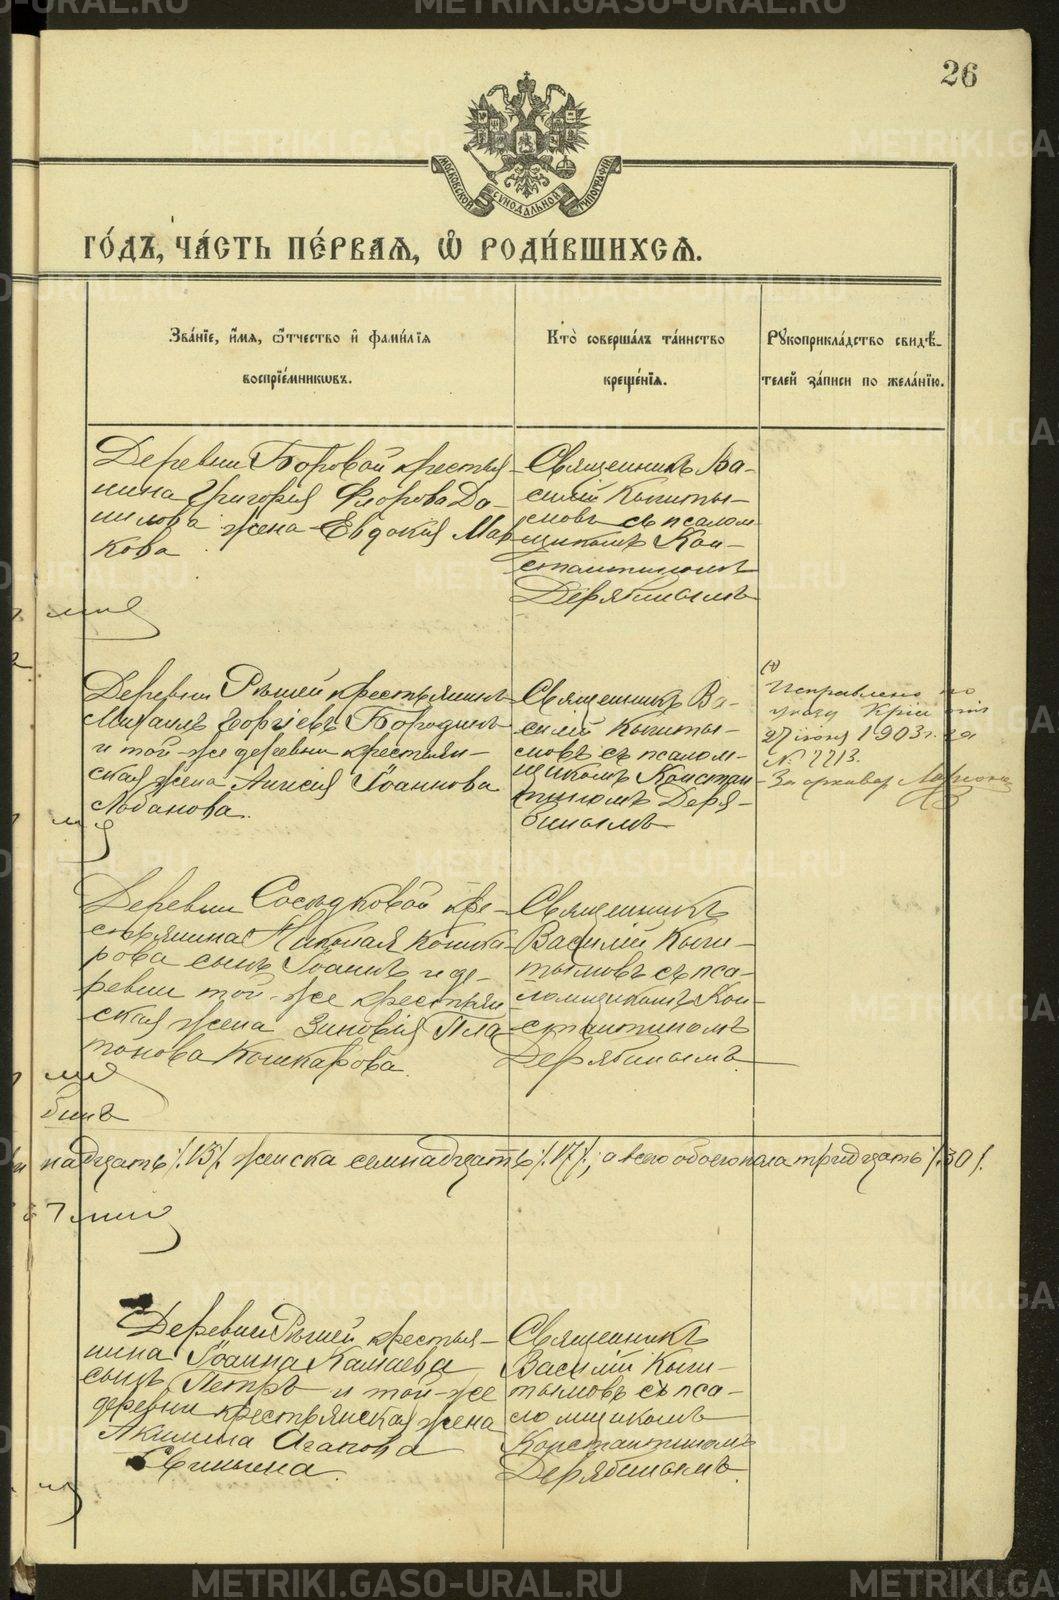 26
МОСКОВСКОЙ СѴНОДАЛЬНОЙ ТИПОГРАФІИ
ГО́ДЪ, ЧА́СТЬ ПЕ́РВАѦ, Ѽ РОДИ́ВШИХСѦ.
Зва́нїе, и҆́мѧ, ѻ҆́тчество и҆ фами́лїѧ
воспрїе́мникѡвъ.
Кто̀ соверша́лъ та́инство
креще́нїѧ.
Рꙋкоприкла́дство свидѣ́-
телей за́писи по жела́нїю.
Деревни Боровой крестья-
нина Григорія Флорова Да-
нилова жена Евдокія Мар
кова
Священникъ Ва-
силій Кышты-
мовъ съ псалом
щикомъ Кон-
стантиномъ
Дерябинымъ
Деревни Рѣшей крестьянинъ
Михаилъ Георгіевъ Бородинъ
и той-же деревни крестьян-
ская жена Анисія Іоаннова
Лобанова.
Священникъ Ва-
силій Кышты-
мовъ съ псалом-
щикомъ Констан
тиномъ Деря-
бинымъ
Исправлено по
указу
27 іюня 1903 г. за
№ 7713.
За архивар
Деревни Сосѣдковой кре-
стьянина Николая Кошка-
рова сынъ Іоаннъ и де-
ревни той-же крестьян
ская жена Зиновія Пла
тонова Кошкарова.
Священникъ
Василій Кыш-
тымовъ съ пса-
ломщикомъ Кон-
стантиномъ
Дерябинымъ.
бинъ
надцать /.13/. женска семнадцать /.17/., а всего обоего пола тридцать /.30/.
Деревни Рѣшей крестья-
нина Іоанна Камаева
сынъ Петръ и той-же
деревни крестьянская жена
Акилина Агапова
Свинина.
Священникъ
Василій Кыш-
тымовъ съ пса-
ломщикомъ
Константиномъ
Дерябинымъ.
METRIKI.GASO-URAL.RU